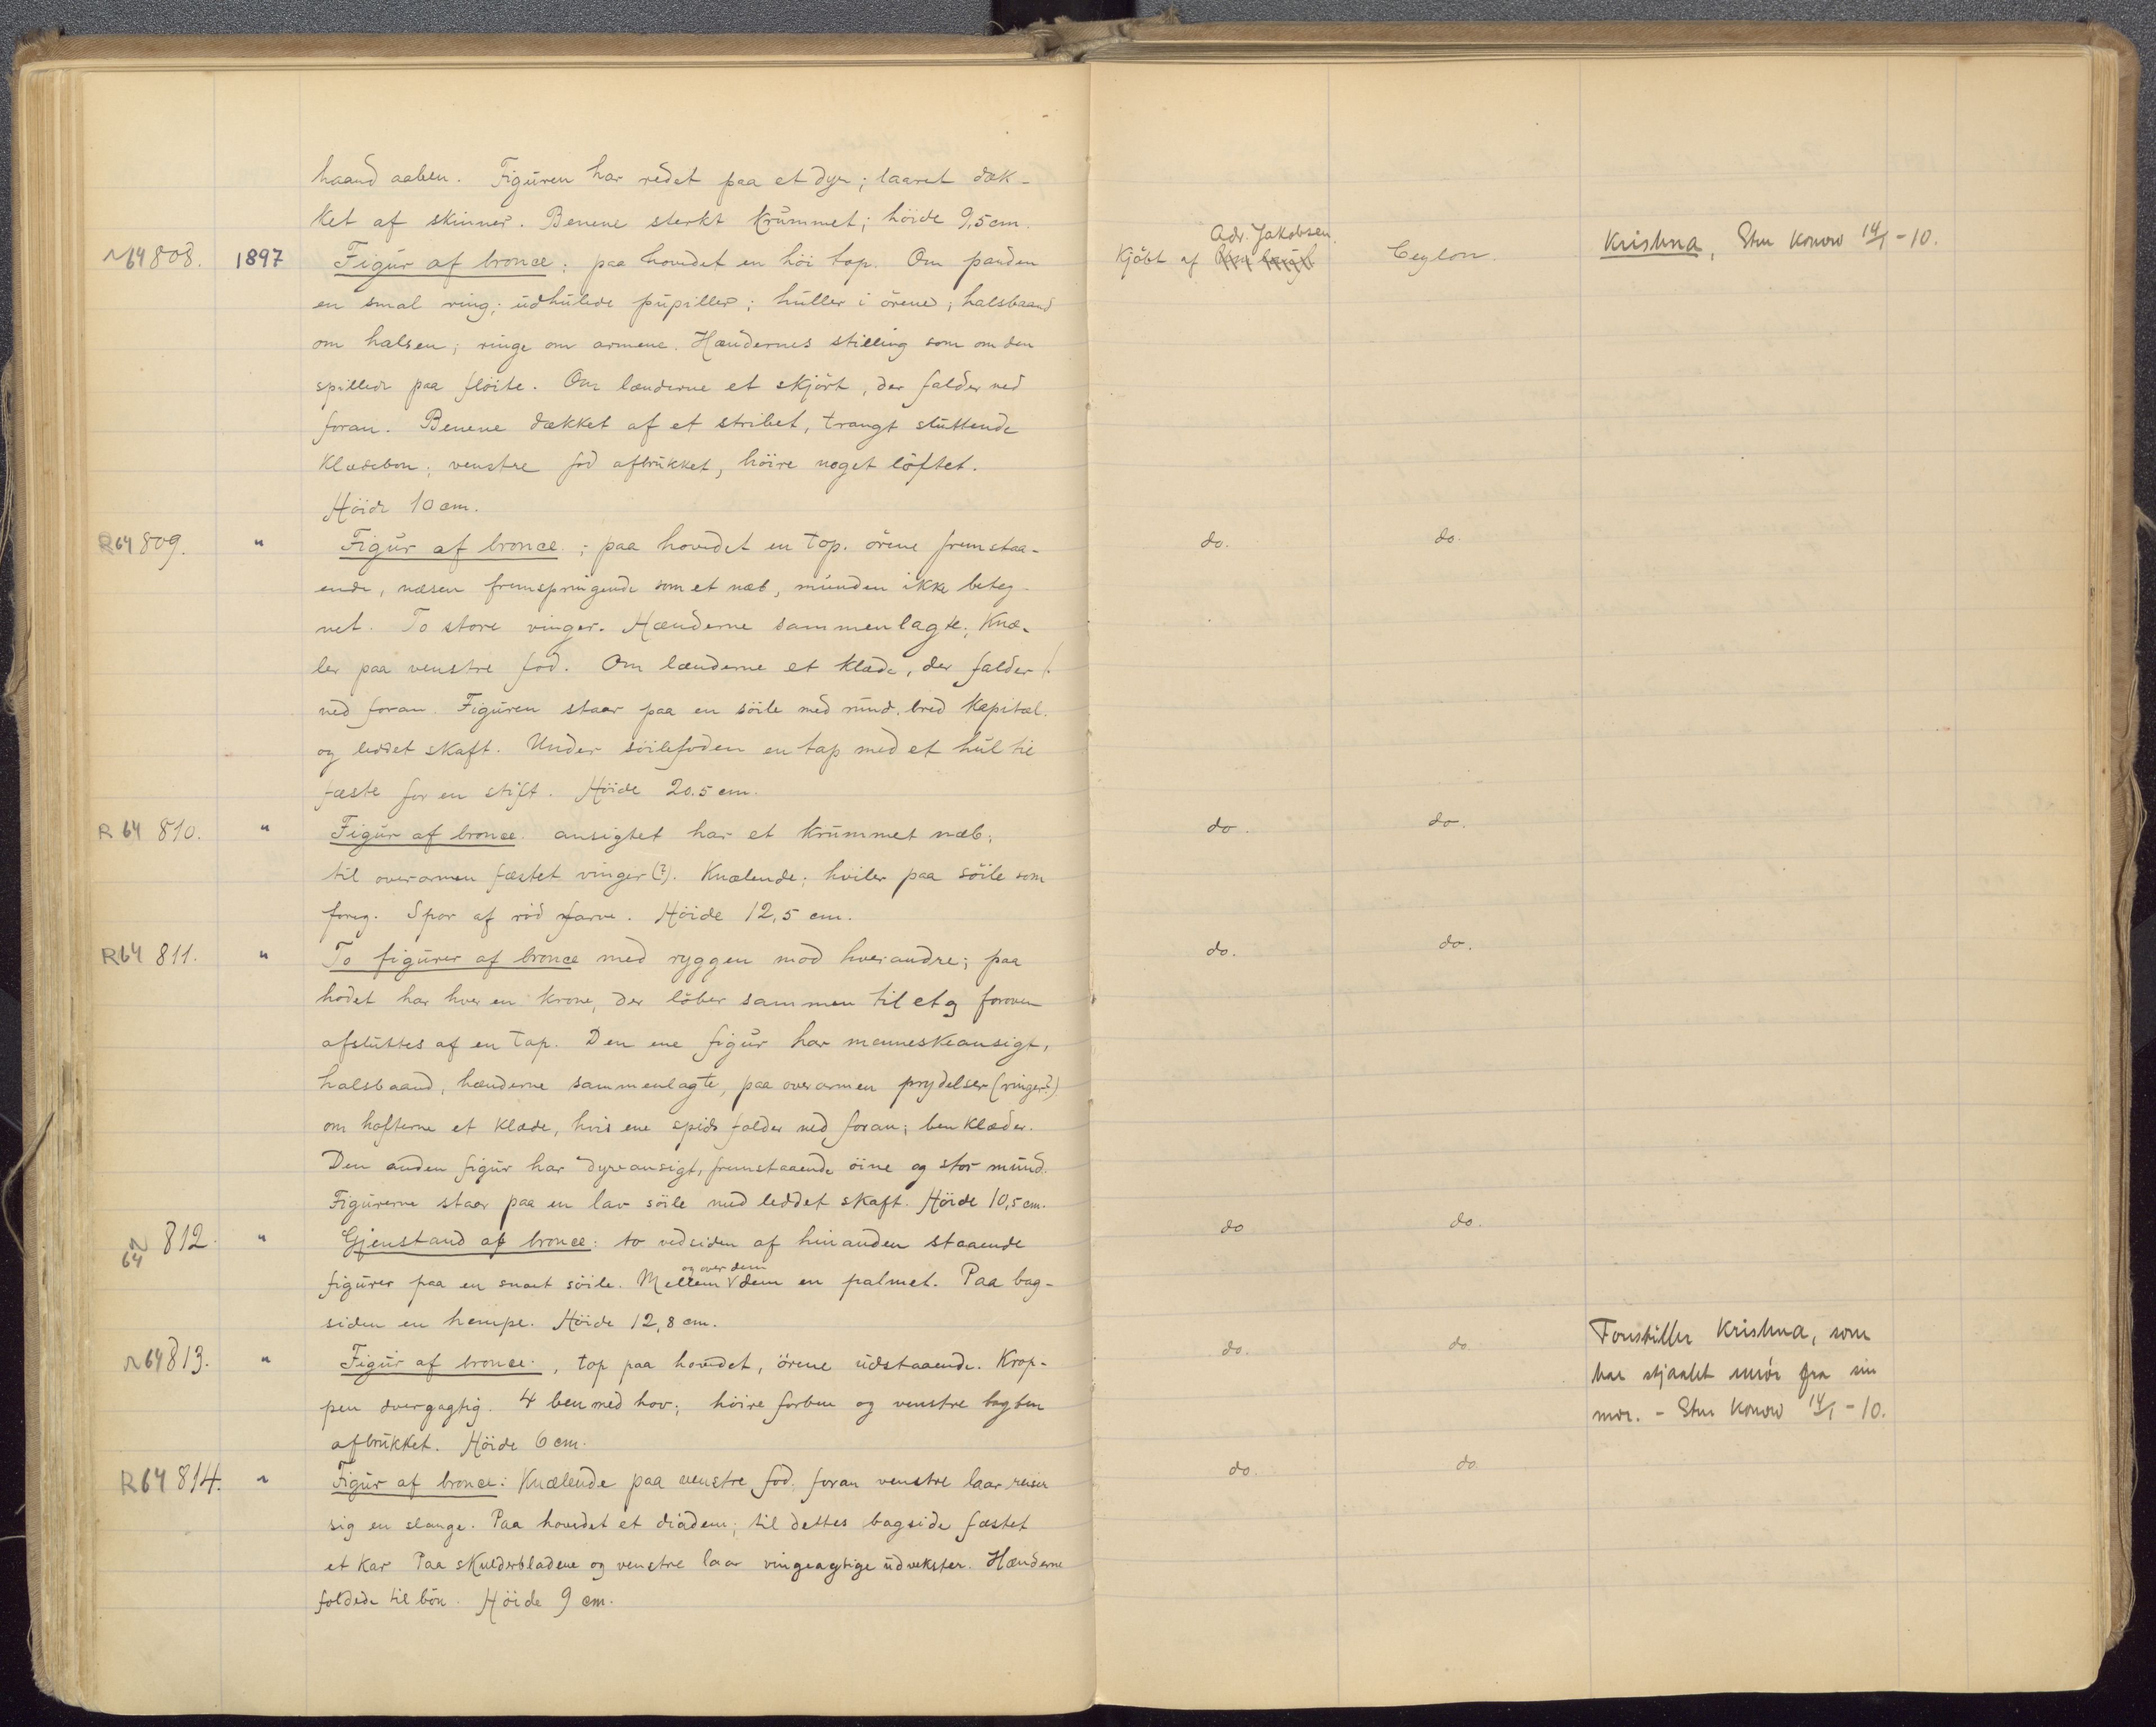 haand aaben. Figuren har redet paa et dyr; laaret dæk-
ket af skinner. Benene sterkt krummet; höide 9,5 cm.
r 64 808. 1897 Figur af bronce; paa hovedet en höi top. Om panden
en smal ring; udhulede pupiller; huller i örene; halsbaand
om halsen; ringe om armene. Hændernes stilling som om den
spillede paa flöite. Om lænderne et skjört, der falder ned
foran. Benene dækket af et stribet, trangt sluttende
klædebon; venstre fod afbrukket, höire noget löftet.
Höide 10 cm.
Kjöbt af Adr. Jakobsen. Ceylon. Krishna, Sten Konow 14/1 - 10.
R 64 809. " Figur af bronce; paa hovedet en top. örene fremstaa-
ende, næsen fremspringende som et næb, munden ikke beteg-
net. To store vinger. Hænderne sammenlagte; Knæ-
ler paa venstre fod. Om lænderne et klæde, der falder
ned foran. Figuren staar paa en söile med rund, bred kapitæl.
og leddet skaft. Under söilefoden en tap med et hul til
fæste for en stift. Höide 20.5 cm.
do. do.
R 64 810. " Figur af bronce. ansigtet har et krummet næb;
til overarmen fæstet vinger (?). Knælende; hviler paa söile som
foreg. Spor af röd farve. Höide 12,5 cm.
do. do.
R 64 811. " To figurer af bronce med ryggen mod hverandre; paa
hodet har hver en krone, der löber sammen til et og foroven
afsluttes af en tap. Den ene figur har menneskeansigt,
halsbaand, hænderne sammenlagte, paa overarmen prydelser (vinger?)
om hofterne et klæde, hvis ene spids falder ned foran; benklæder.
Den anden figur har dyreansigt, fremstaaende öine og stor mund.
Figurerne staar paa en lav söile med leddet skaft. Höide 10,5 cm.
do. do.
r 64 812. " Gjenstand af bronce: to vedsiden af hinanden staaende
figurer paa en snoet söile. Mellem og over dem dem en palmet. Paa bag-
siden en hempe. Höide 12,8 cm.
do do.
r 64 813. " Figur af bronce., top paa hovedet, örene udstaaende. Krop-
pen dvergagtig. 4 ben med hov; höire forben og venstre bagben
afbrukket. Höide 6 cm.
do. do. Forestiller Krishna, som
har stjaalet smör fra sin
mor. - Sten Konow 14/1 - 10.
R 64 814. " Figur af bronce: Knælende paa venstre fod, foran venstre laar reiser
sig en slange. Paa hovedet et diadem; til dettes bagside fæstet
et kar Paa skulderbladene og venstre laar vingeagtige udvekster. Hænderne
foldede til bön. Höide 9 cm.
do. do.